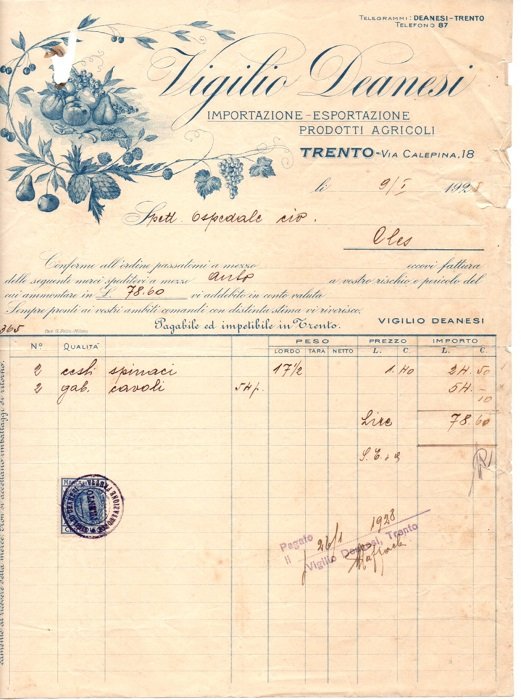 TELEGRAMMI: DEANESI-TRENTO
TELEFONO 87
Vigilio Deanesi
IMPORTAZIONE-ESPORTAZIONE
PRODOTTI AGRICOLI
TRENTO-VIA CALEPINA,18
li 9/I 1928
Spett. Ospedale civ.
Cles
Conforme all'ordine passatomi a mezzo eccovi fattura
delle seguenti merci speditevi a mezzo auto a vostro rischio e pericolo del
cui ammontare in L. 78.60 vi addebito in conto valuta
Sempre pronti ai vostri ambiti comandi con distinta stima vi riverisco,
365
Pagabile ed impetibile in Trento.
VIGILIO DEANESI
No QUALITÀ PESO PREZZO IMPORTO
LORDO TARA NETTO L. C. L. C.
2 cesti spinaci 17½ 1.40 24.50
2 gab. cavoli 54 p. 54.-
10
Lire 78.60
S. E. & O.
Pagato
li 26/1 1928
Vigilio Deanesi, Trento
TRENTO